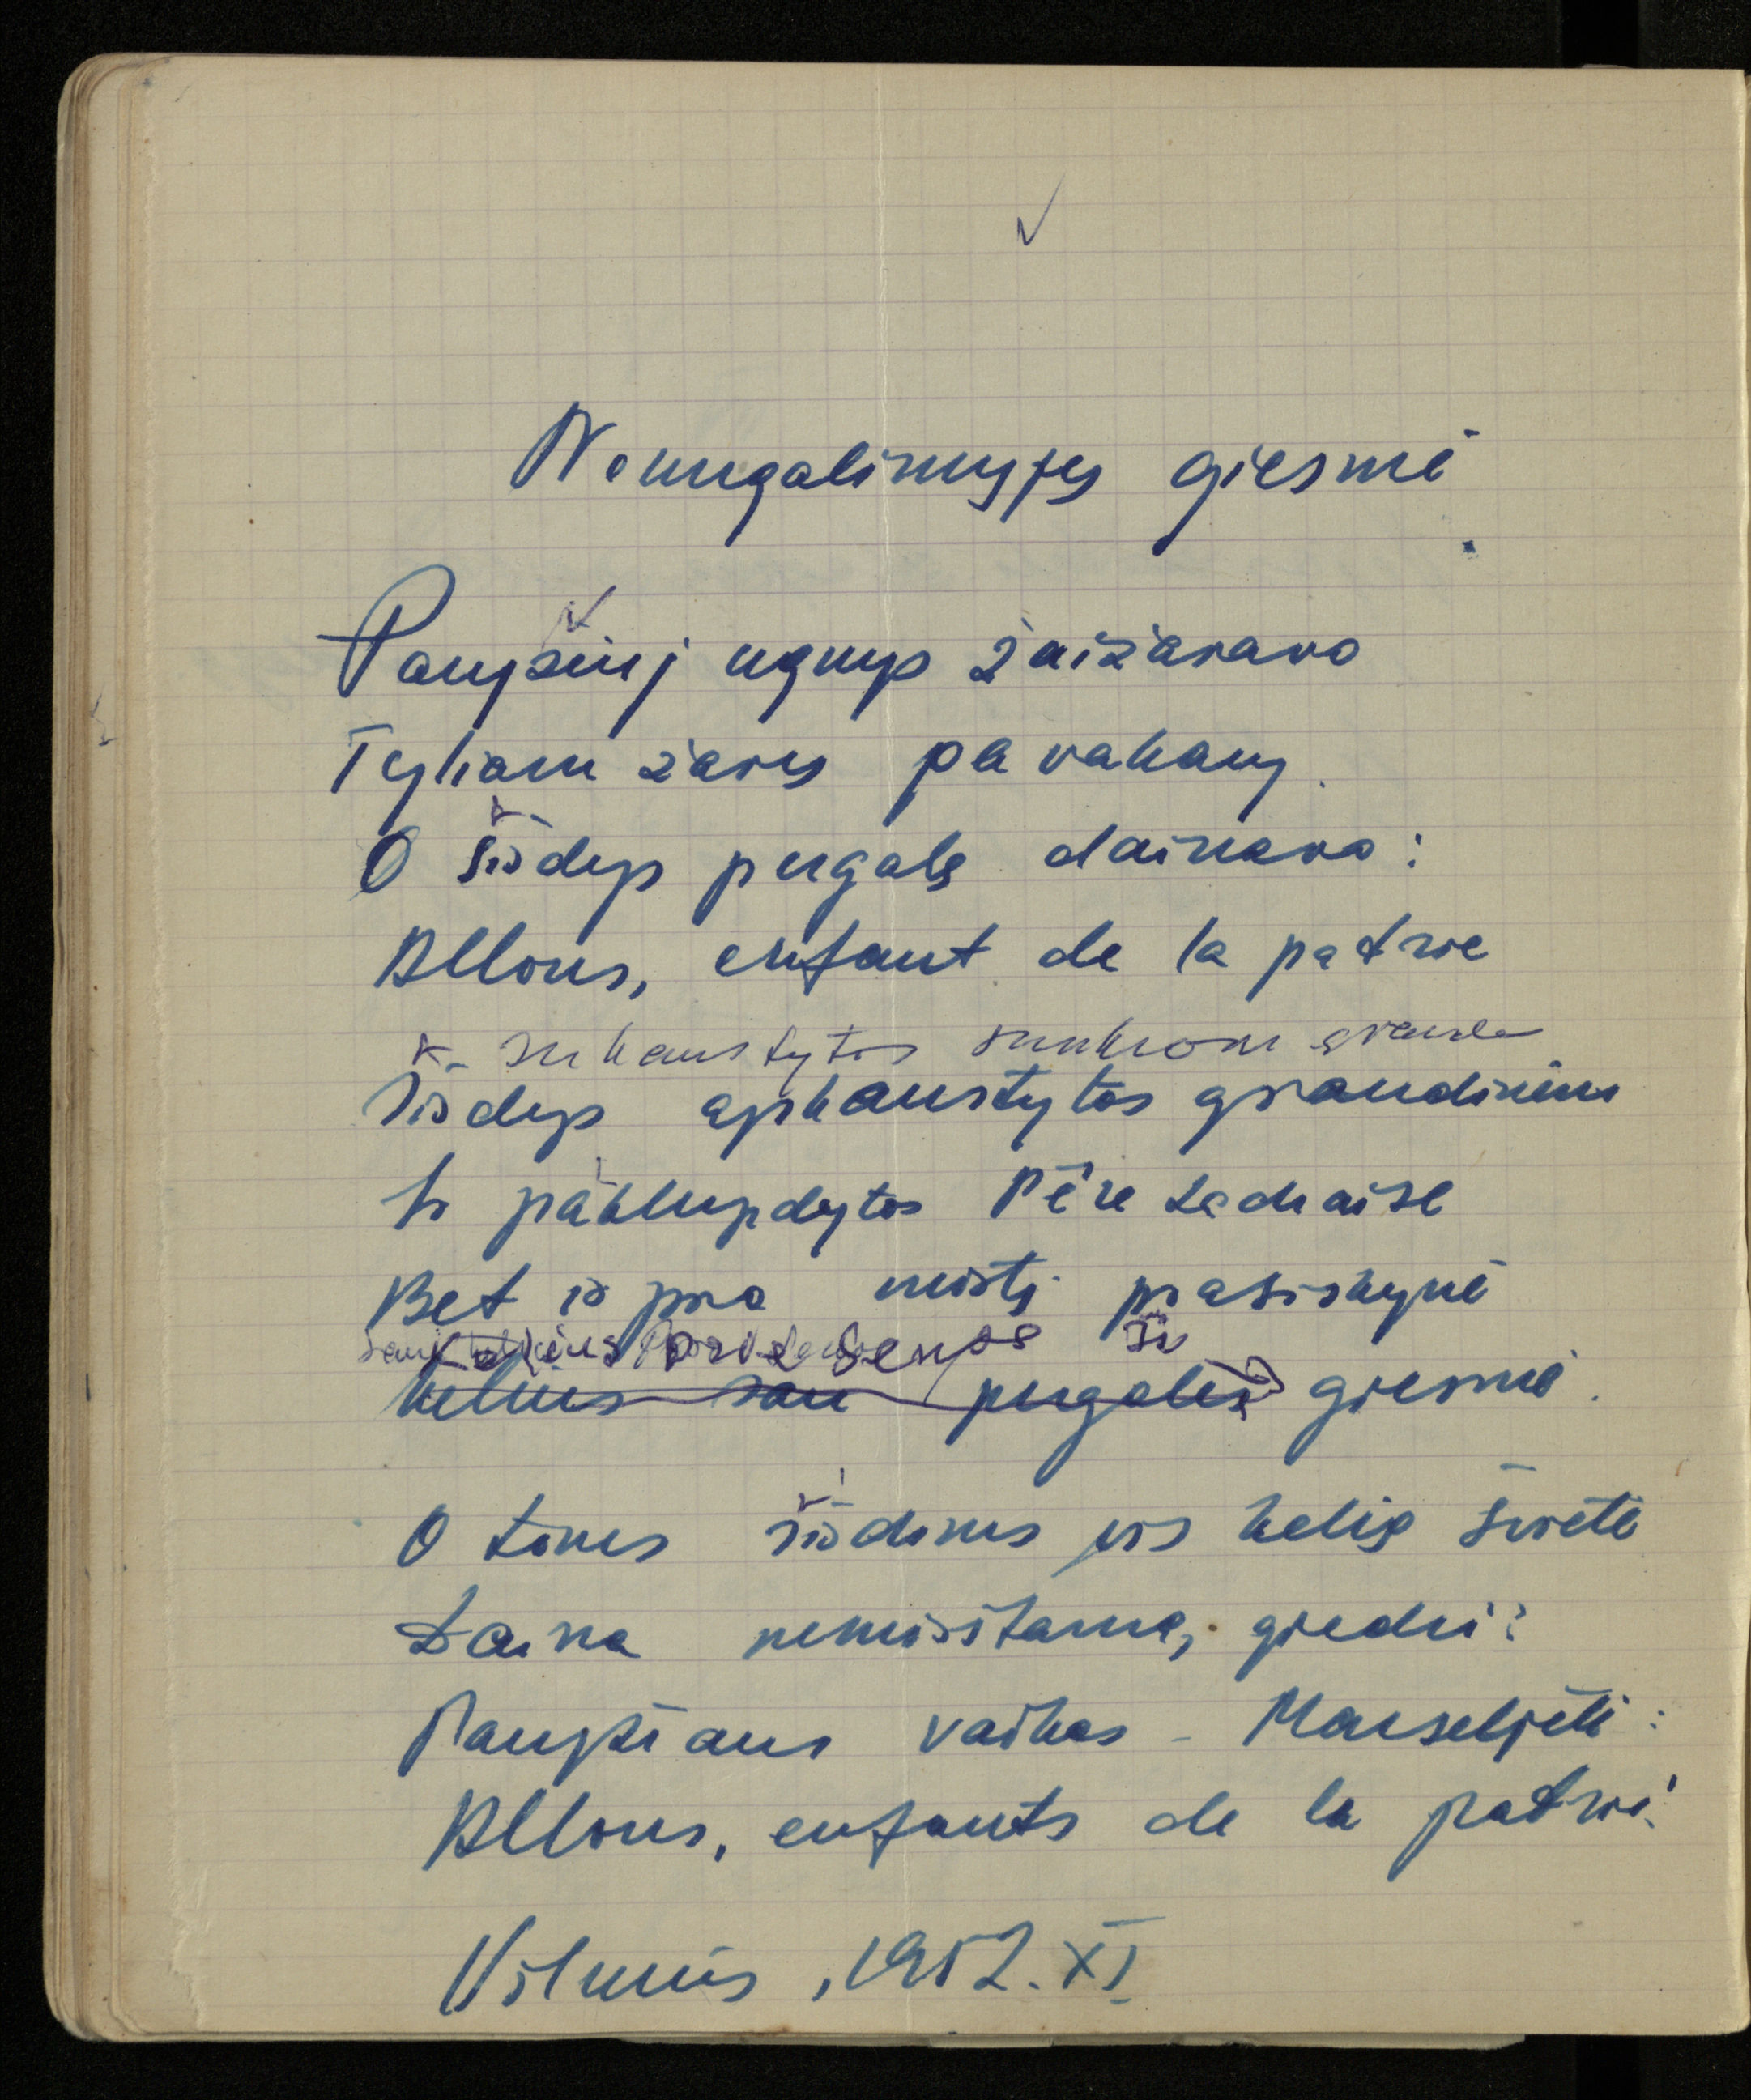 Nenugalimųjų giesmė
Paryžių ugnys žaižaravo
Tykiam žarų pavakary.
O širdys pergalę dainavo:
Allons, enfant de la patrie
sukaustytos sunkiom
Širdys apkaustytos grandinėm
Ir parklupdytos Père Lachaise
Bet iš pro mirtį prasiskynė
kelius sau pergalės giesmė.
O tavęs širdims jis kelią švietė
Daina nemirštama, giedri:
Paryžiaus vaikas – Marseljetė:
Allons, enfants de la patrie!
Vilnius, 1952.XI